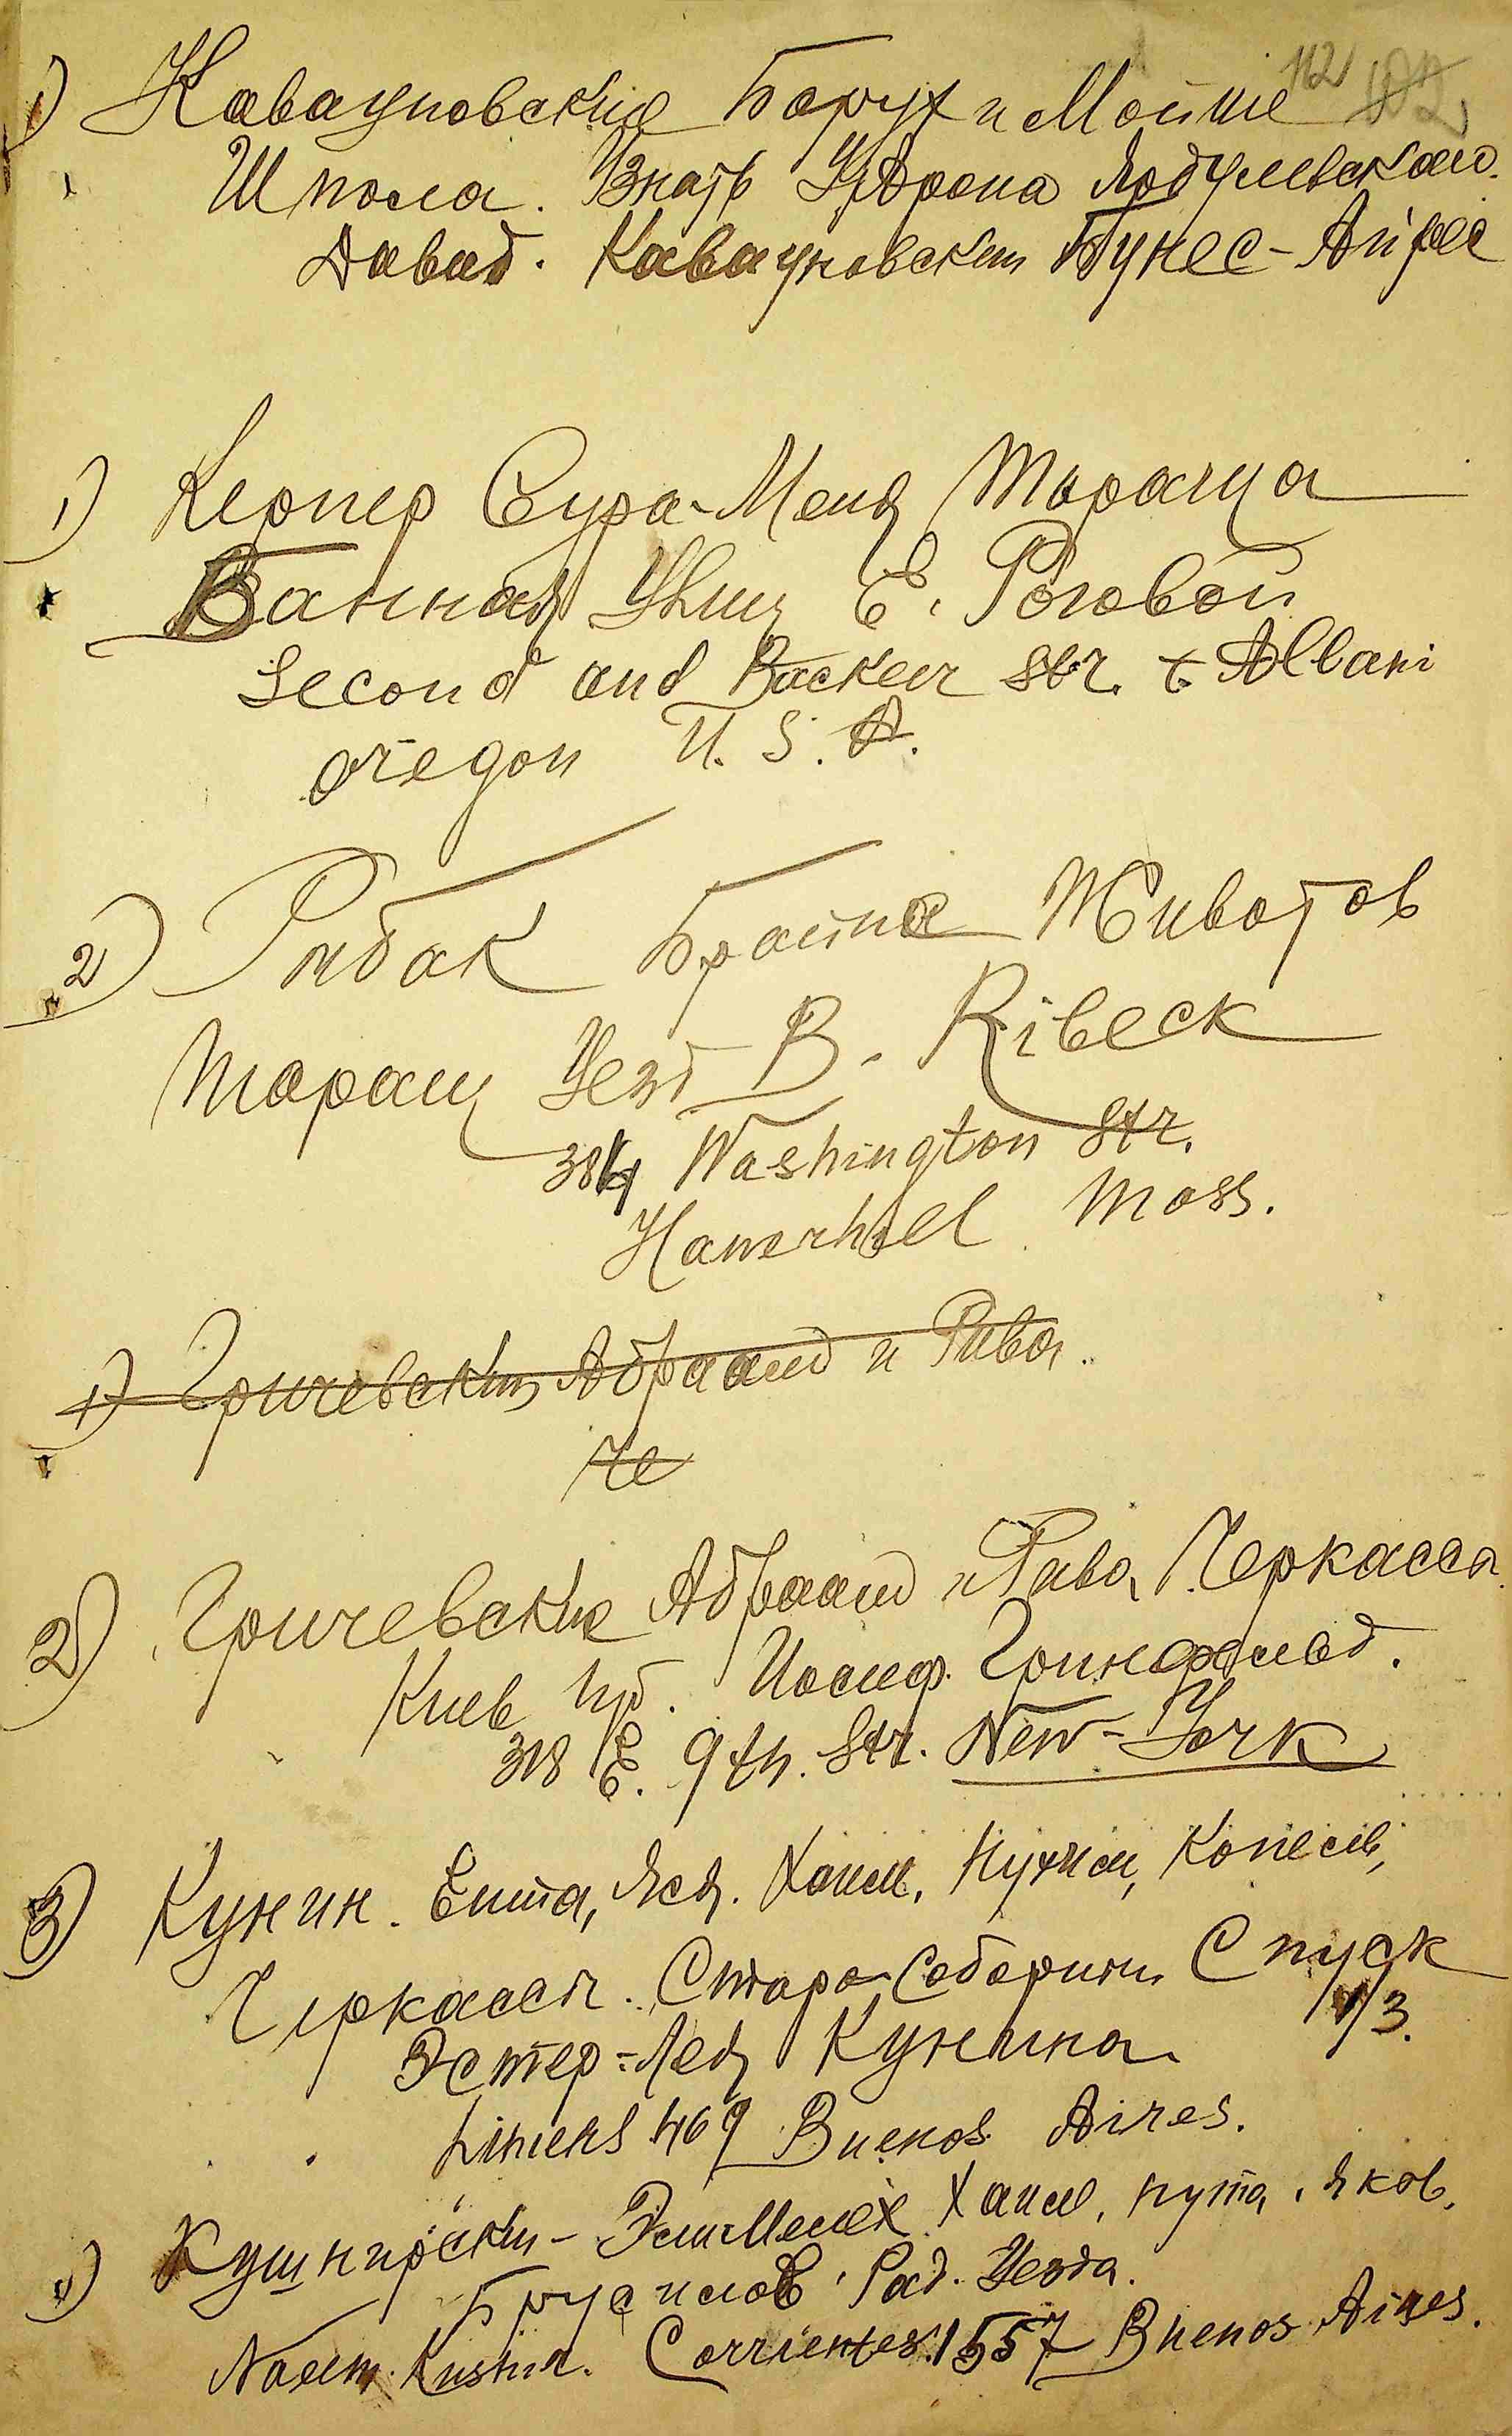 112
1) Кавауновские Борух и Мойше
Шпола. Знать Удрона
Давид. Кавауновский Бунес-Айрес
1) Кернер Сура-Меня Тараща
Банная Улиц Е. Роговой
Second and Backer Str. Albani
Oregon U. S. A.
2) Рибак Брайна Животов
Таращ Уезд B. Ribeck
384 Washington Str.
Hawerhill Mass.
1) Гричевский Абраам и Рива.
Че
2) Гричевские Абраам и Рива, Черкассы
Киев Губ. Иосиф Гринфельд.
318 E. 9 th. Str. New-York
3) Кунин. Ента, Ася. Хаим, Нухим, Копель,
Черкассы. Старо-Соборный Спуск
Эстер-Лея Кунина 1/3.
Liniers 469 Buenos Aires.
1) Кушнирский - Хаим, Нута, Яков,
Брусилов Рад. Уезда.
Kushir. Corrientes 1557 Buenos Aires.